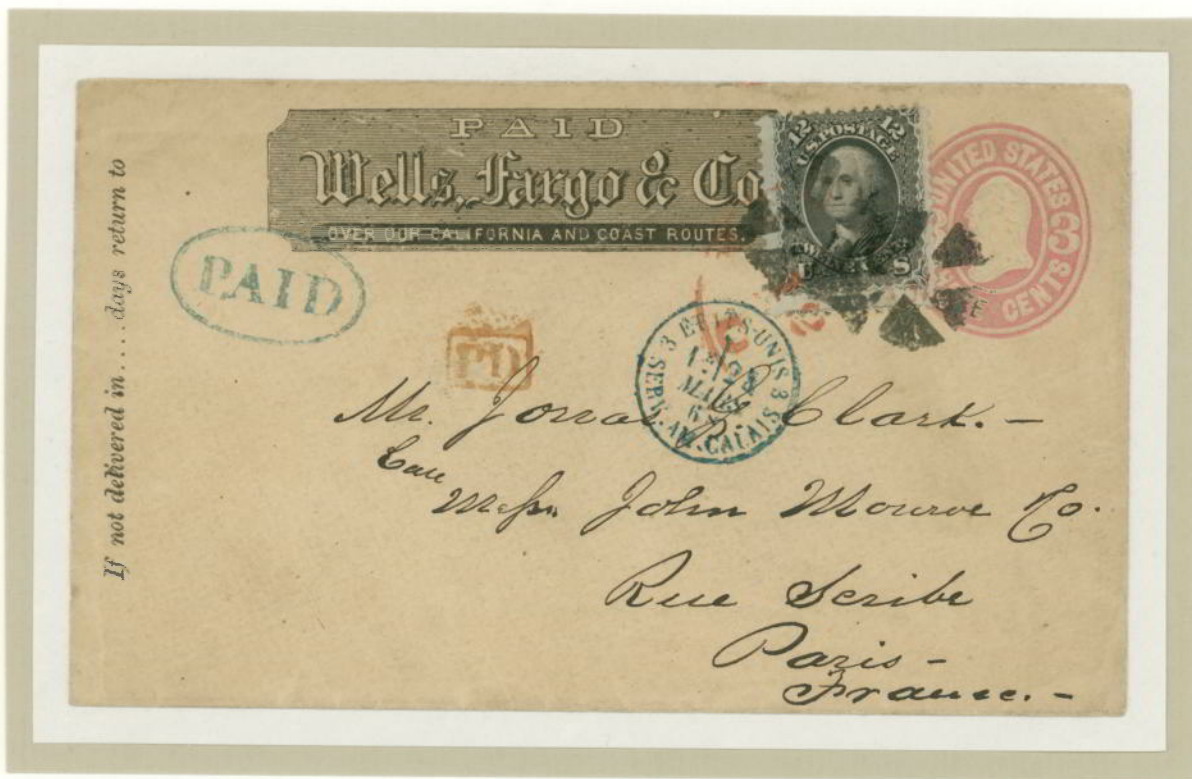 If not delivered in . . . . days return to
PAID
Wells, Fargo & Co
OVER OUR CALIFORNIA AND COAST ROUTES.
12 12
U.S. POSTAGE
UNITED STATES
3
CENTS
PAID
PD
3 ETATS-UNIS 3
SERV. AM. CALAIS
MARS
68
Mr. Jonas G. Clark. -
Care
Messrs John Monroe Co.
Rue Scribe
Paris -
France. -